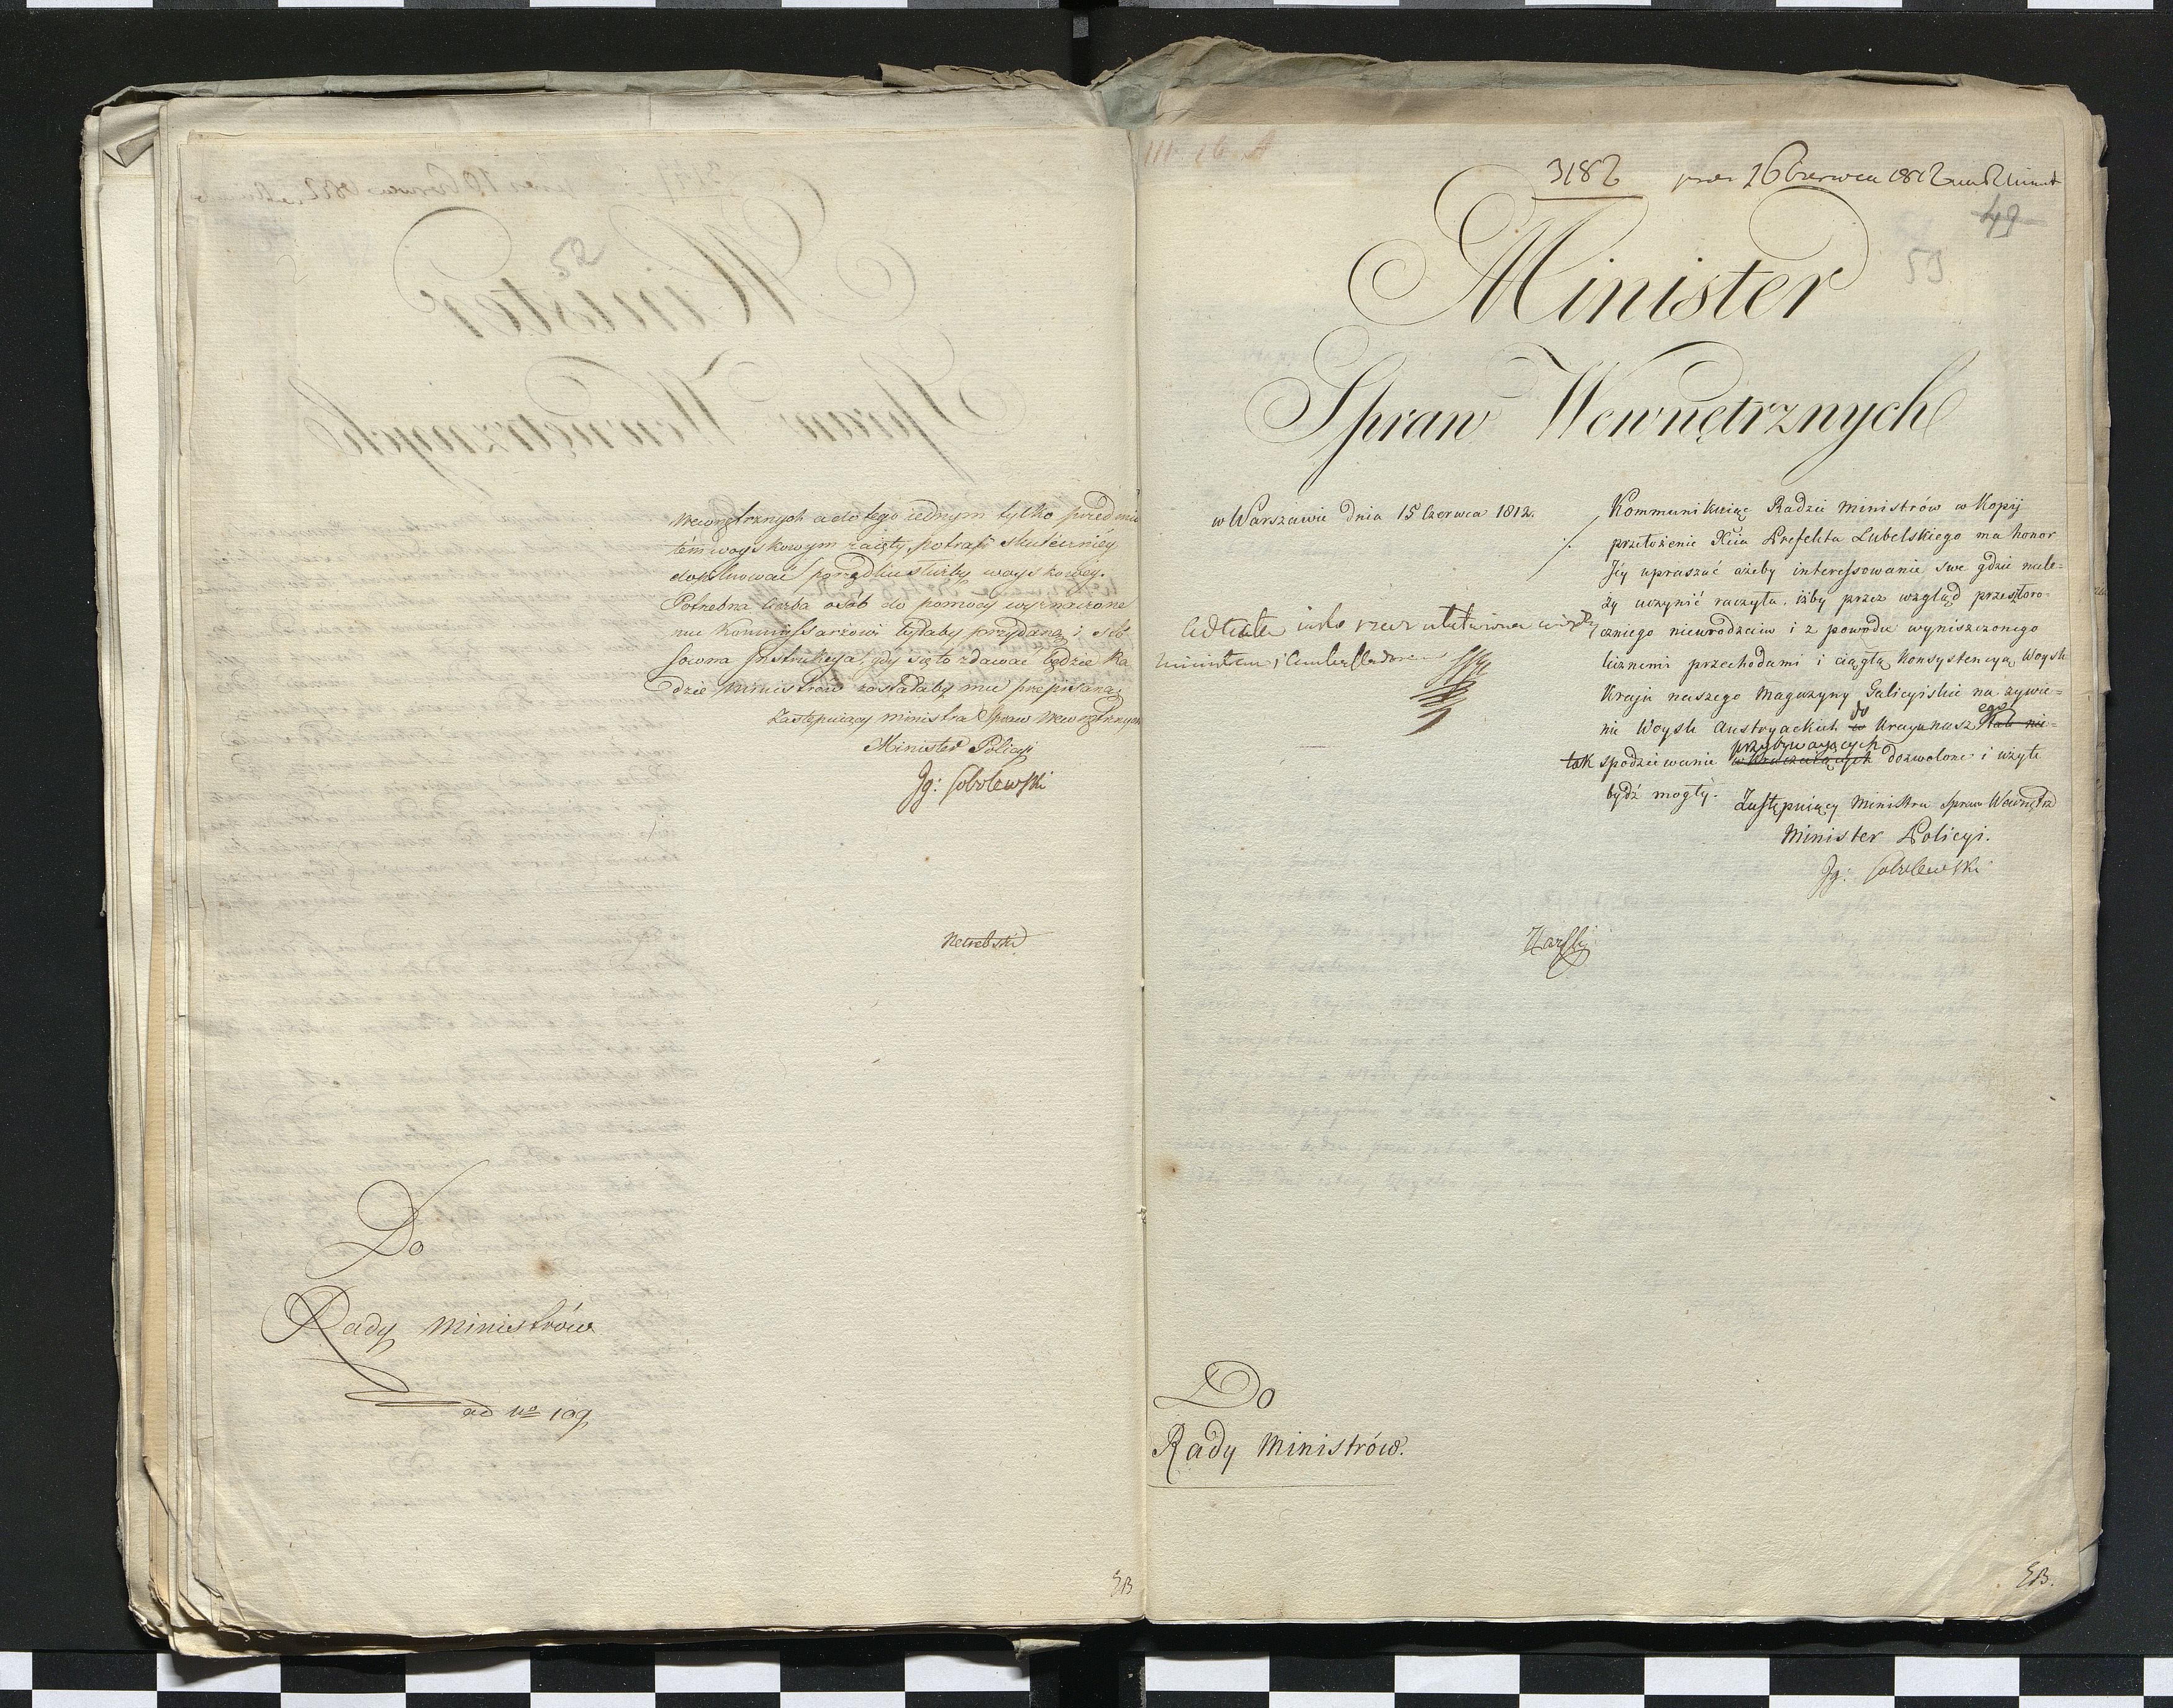 52
Wewnętrznych a do tego iednym tylko przedmio
tem woyskowym zaięty, potrafi skuteczniey
dopilnować porządku służby woyskowéy.
Potrzebna liczba osób do pomocy wyznaczone
mu Kommissarzowi byłaby przydana, i sto
sowna Instrukcya, gdy się to zdawać będzie Ra
dzie Ministrów zostałaby mu przepisaną.
Zastępuiący Ministra Spraw Wewnętrznych
Minister Policyi
Ig: Sobolewski
Do
Rady Ministrów
ad no 109
EB
3182 prez 16 Czerwca 1812
49
53
Minister
Spraw Wewnętrznych
w Warszawie dnia 15 Czerwca 1812.
Kommunikuiąc Radzie Ministrów w Kopij
przełożenie Xcia Prefekta Lubelskiego ma honor
Jey upraszać ażeby interessowanie swe gdzie nale-
ży uczynić raczyła, iżby przez wzgląd przeszłoro-
cznego nieurodzaiu i z powodu wyniszczonego
licznemi przechodami i ciągłą Konsystencyą Woysk
Kraju naszego Magazyny Galicyiskie na żywie-
nie Woysk Austryackich do Kraju naszego tak nie-
tak spodziewanie przybywaiących dozwolone i użyte
bydź mogły.
Zastępuiący Ministra Spraw Wewnętrz
Minister Policyi.
Ig: Sobolewski
Do
Rady Ministrów.
EB.